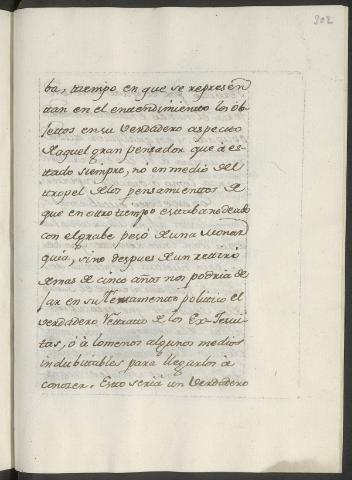 202
ba, tiempo en que se represen
tan en el entendimiento los ob-
jettos en su verdadero aspecto
Aaquel gran pensador que a es
tado siempre, no en medio del
tropel de los pensamientos de
que en otro tiempo estaba
con el grabe peso de una Monar
quia, sino despues de un retiro
de mas de cinco años nos podria de
jar en su Testamento politico el
verdadero Retrato de los Ex-Jesui-
tas, ò à lo menos algunos medios
indubitables para llegarlos à
conocer. Esto seria un verdadero